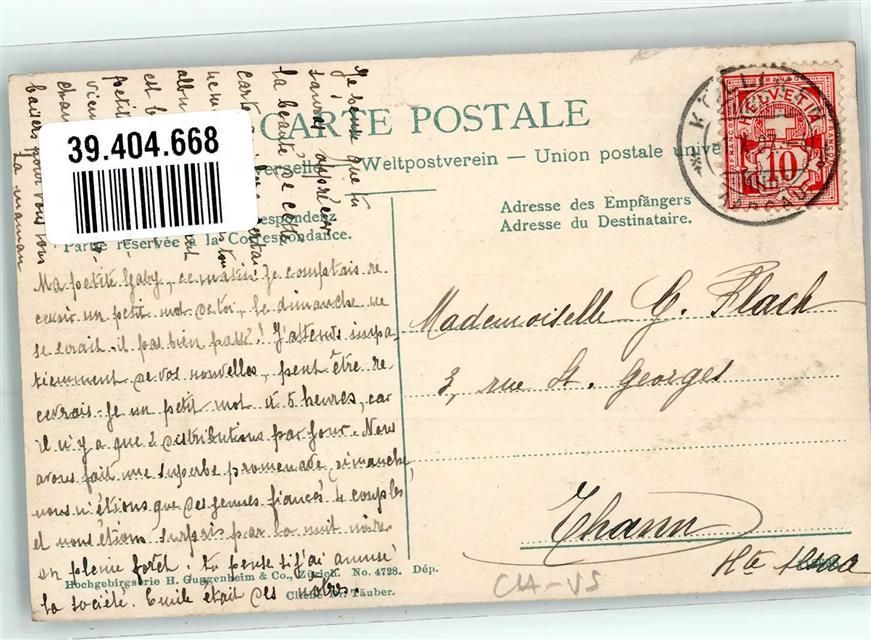 39.404.668
CARTE POSTALE
Weltpostverein — Union postale unive
Partie réservée à la Correspondance.
Adresse des Empfängers
Adresse du Destinataire.
HELVETIA
FRANCO
10
Ma petite Gaby, ce matin je comptais re-
cevoir un petit mot de toi, le dimanche ne
se serait-il pas bien passé! J'attends impa-
tiemment de vos nouvelles, peut être re-
cevrais-je un petit mot à 5 heures, car
il n'y a que 2 distributions par jour. Nous
avons fait une superbe promenade dimanche,
nous n'étions que des jeunes fiancés 4 couples
et nous étions surpris par la nuit noire
en pleine forêt. tu pense si j'ai amusé
la société. Emile était des nôtres.
Je pense que tu
sauras apprécier
la beauté de cette
baisers pour vous tous
La maman
Mademoiselle G. Flach
3, rue St. Georges
Thann
Hte Alsace
Hochgebirgserie H. Guggenheim & Co., Zürich. No. 4728. Dép.
Cliché Dr. Täuber.